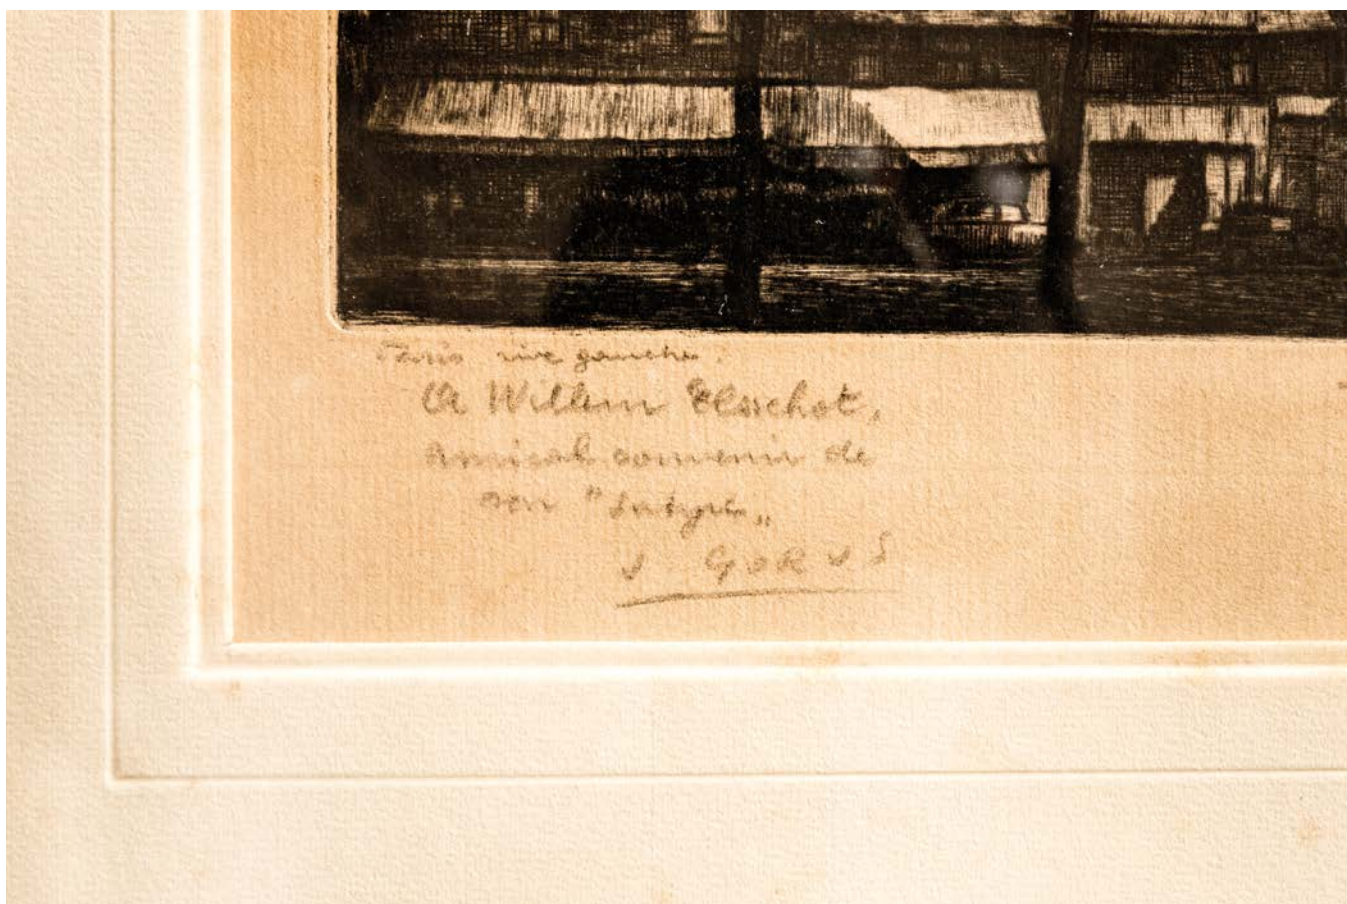 Paris rive gauche.
A Willem Elsschot,
amical souvenir de
son "Satyre„
J GORUS